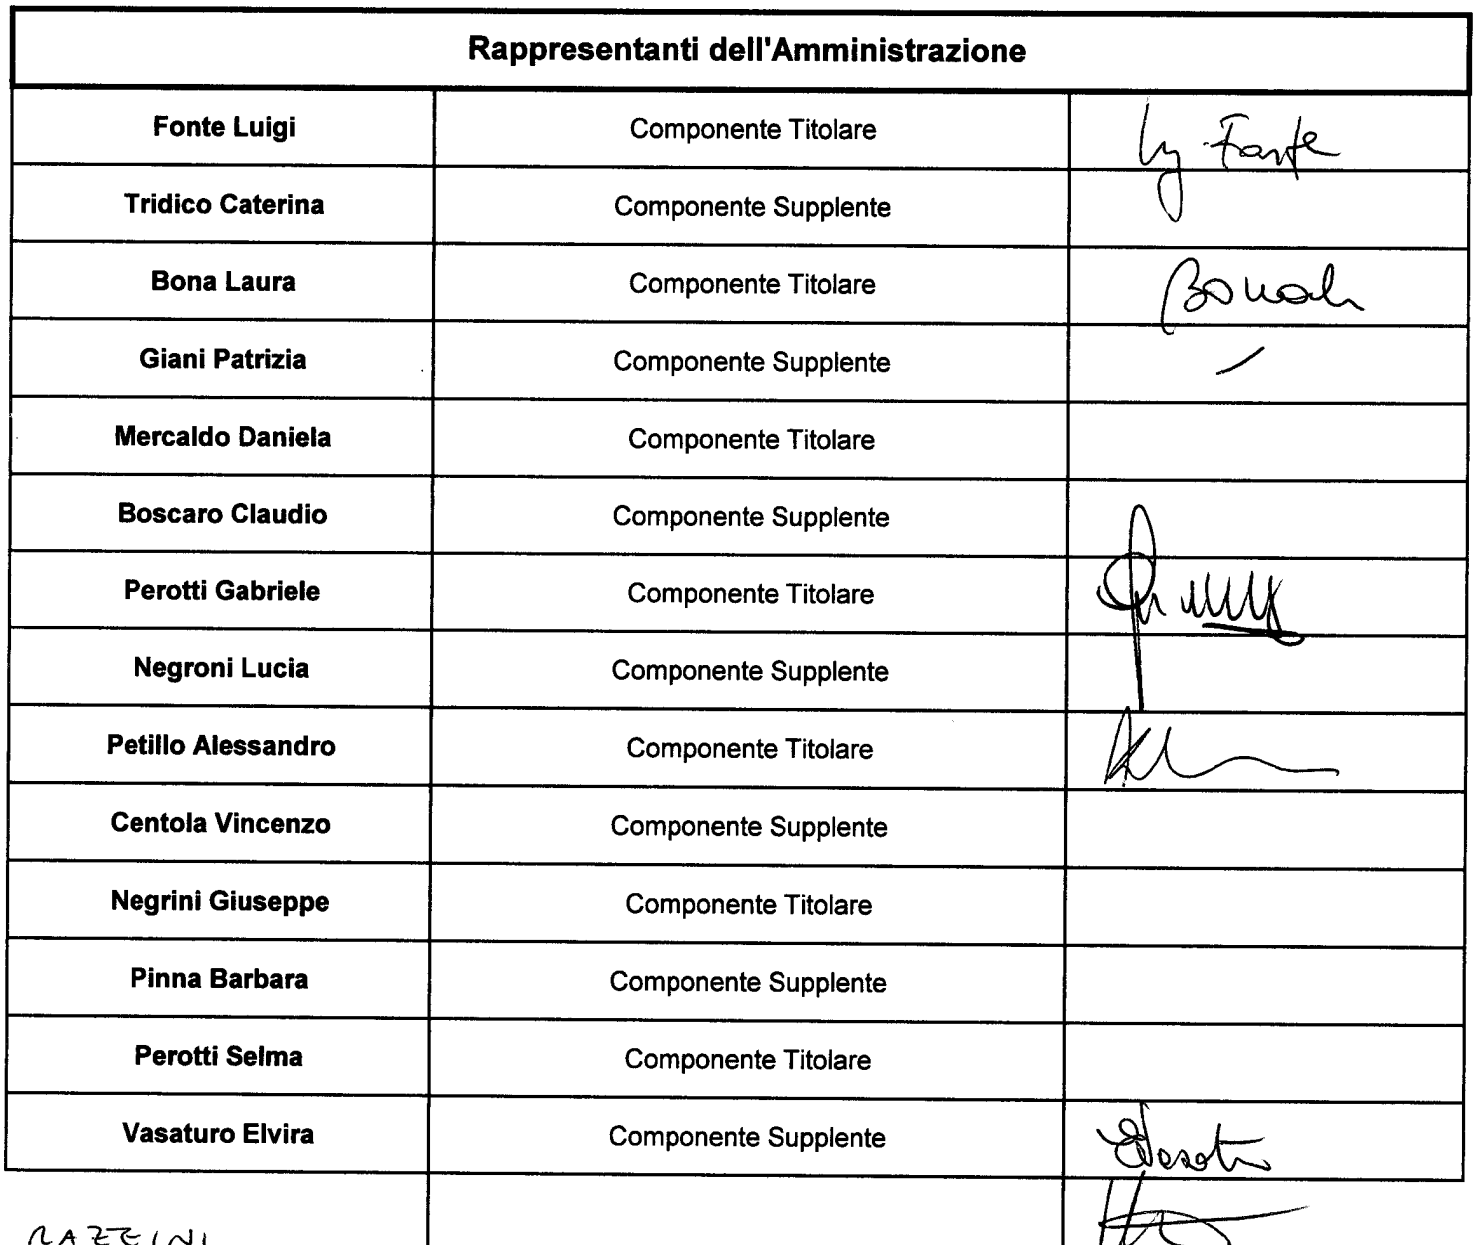 Rappresentanti dell'Amministrazione
Fonte Luigi Componente Titolare Fonte
Tridico Caterina Componente Supplente
Bona Laura Componente Titolare
Giani Patrizia Componente Supplente
Mercaldo Daniela Componente Titolare
Boscaro Claudio Componente Supplente
Perotti Gabriele Componente Titolare
Negroni Lucia Componente Supplente
Petillo Alessandro Componente Titolare
Centola Vincenzo Componente Supplente
Negrini Giuseppe Componente Titolare
Pinna Barbara Componente Supplente
Perotti Selma Componente Titolare
Vasaturo Elvira Componente Supplente